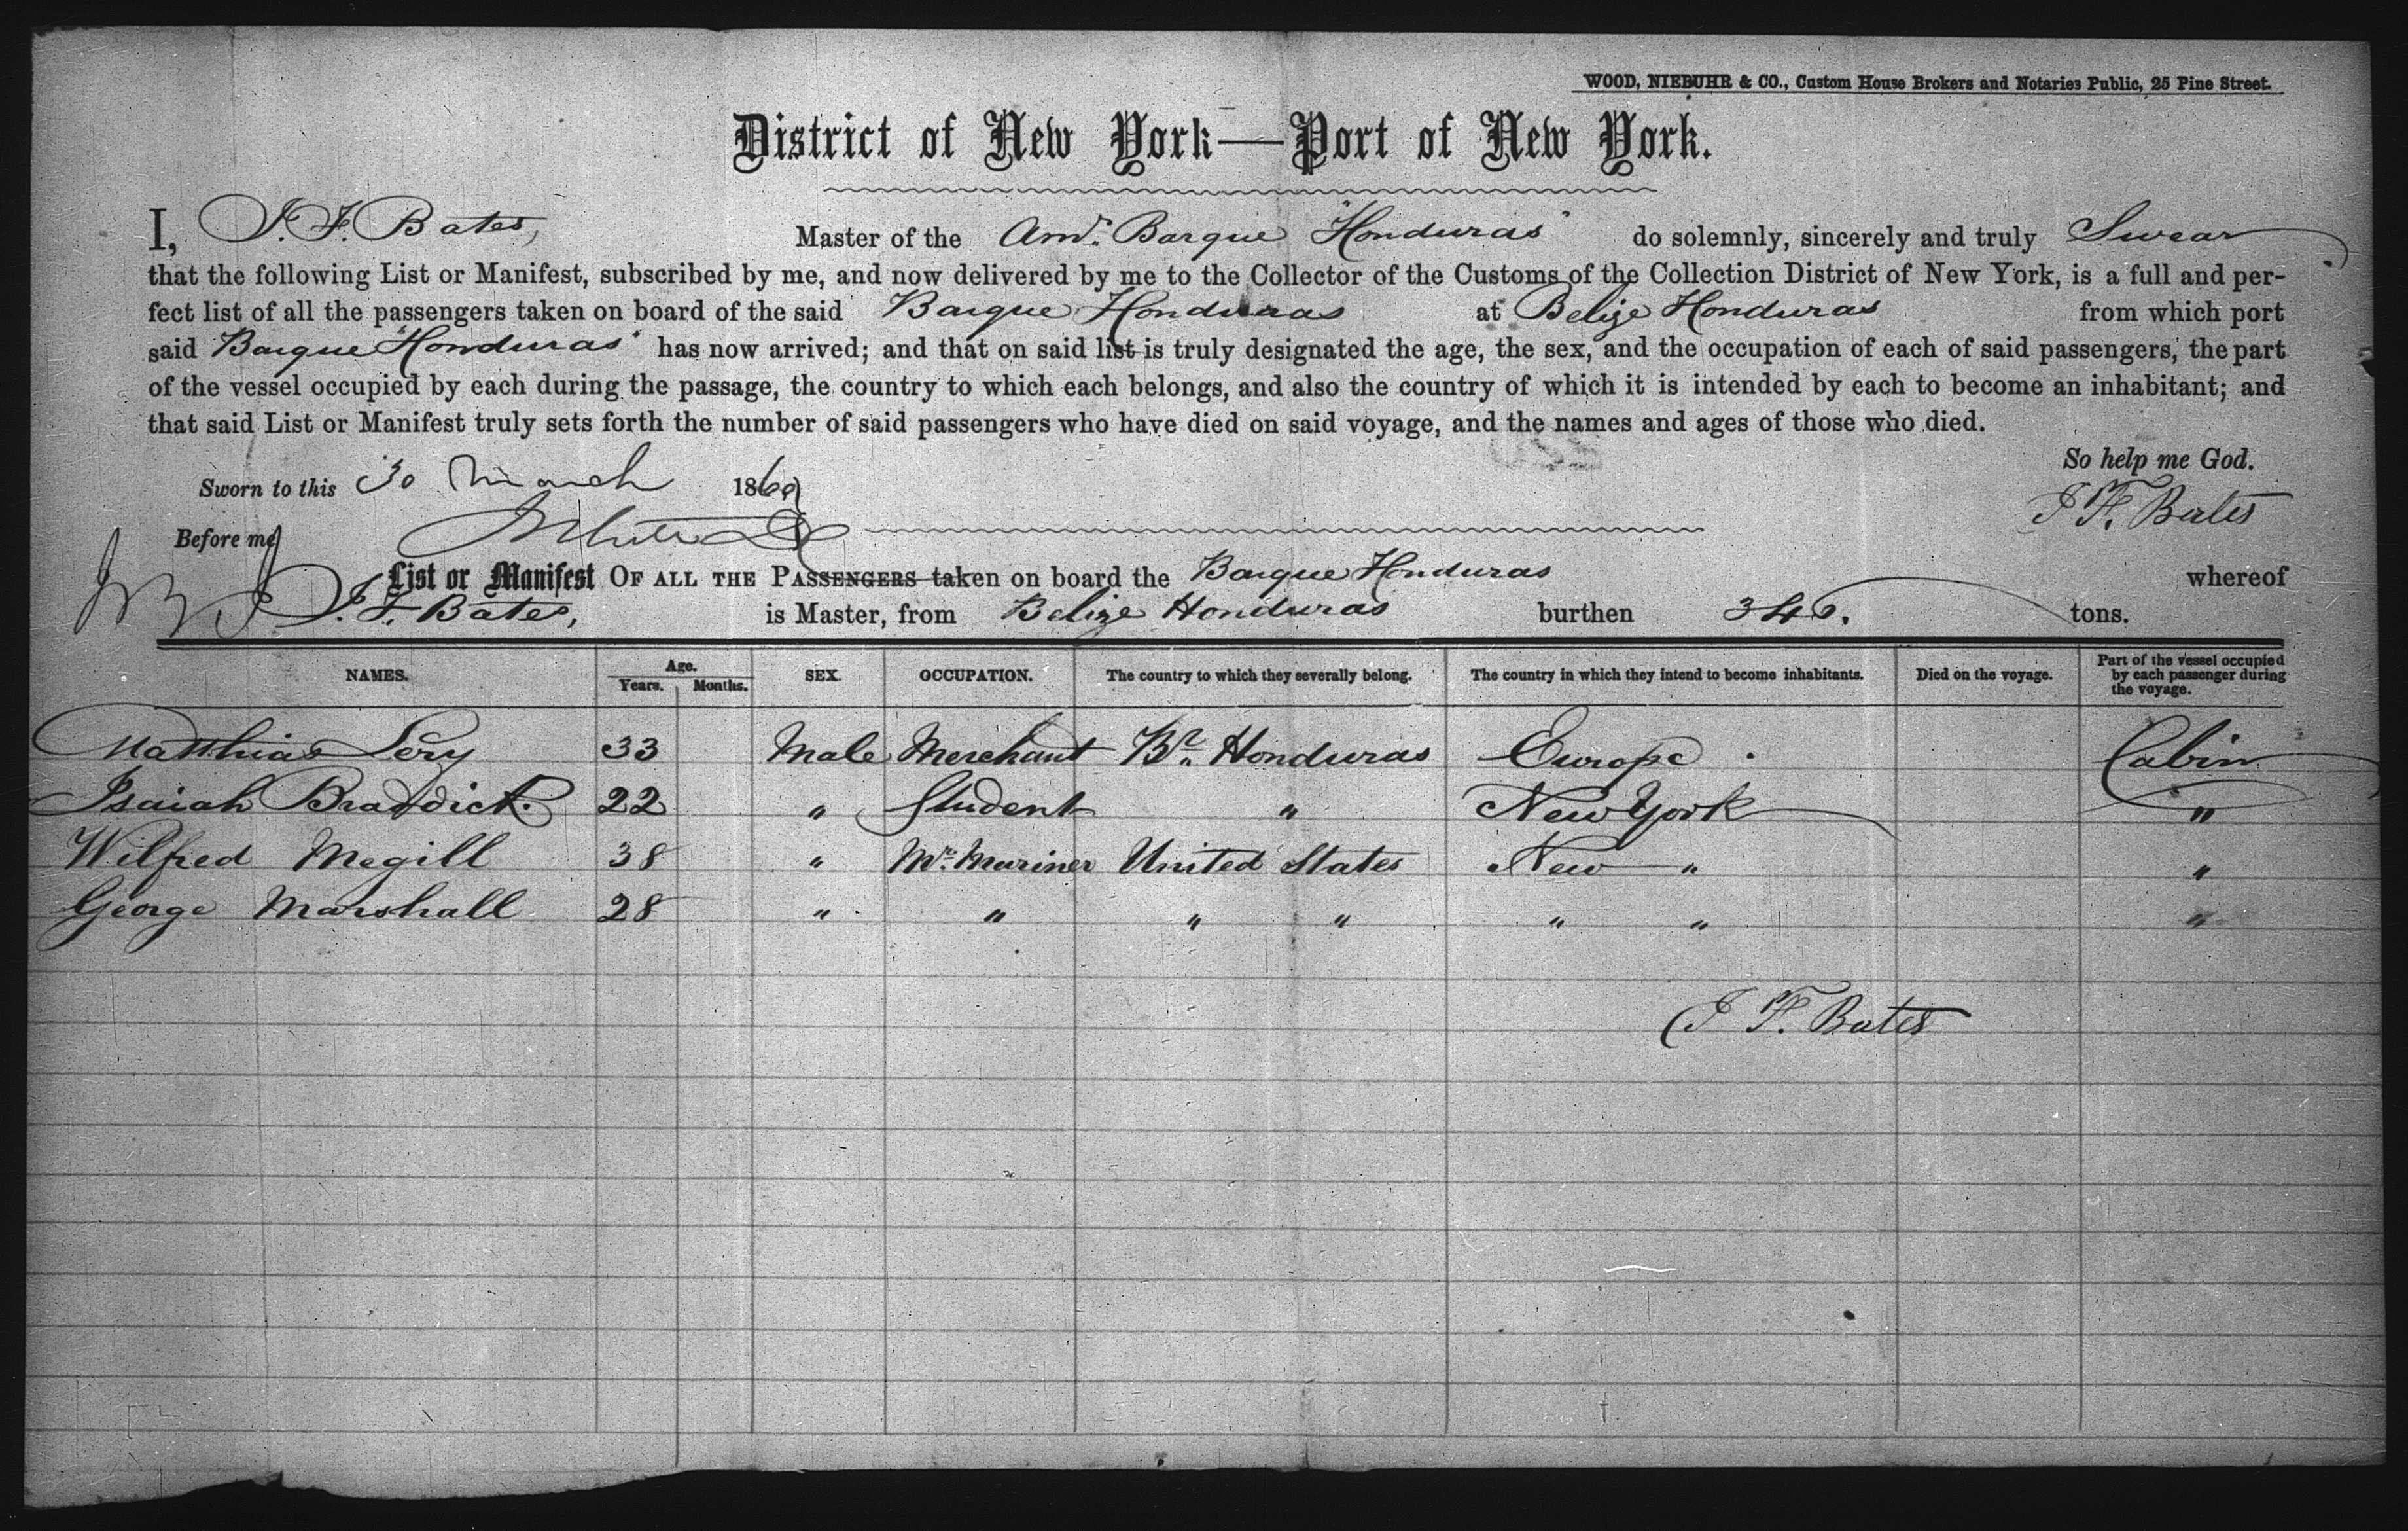 WOOD, NIEBUHR & CO., Custom House Brokers and Notaries Public, 25 Pine Street.
District of New York—Port of New York.
I, J. F. Bates, Master of the Amr. Barque "Honduras" do solemnly, sincerely and truly Swear
that the following List or Manifest, subscribed by me, and now delivered by me to the Collector of the Customs of the Collection District of New York, is a full and per-
fect list of all the passengers taken on board of the said Barque Honduras at Belize Honduras from which port
said Barque "Honduras" has now arrived; and that on said list is truly designated the age, the sex, and the occupation of each of said passengers, the part
of the vessel occupied by each during the passage, the country to which each belongs, and also the country of which it is intended by each to become an inhabitant; and
that said List or Manifest truly sets forth the number of said passengers who have died on said voyage, and the names and ages of those who died.
So help me God.
Sworn to this 30 March 1869
J F. Bates
Before me
List or Manifest OF ALL THE PASSENGERS taken on board the Barque Honduras whereof
J. F. Bates, is Master, from Belize Honduras burthen 346. tons.
NAMES. Age. Years. Months. SEX. OCCUPATION. The country to which they severally belong. The country in which they intend to become inhabitants. Died on the voyage. Part of the vessel occupied by each passenger during the voyage.
Matthias Levy 33 Male Merchant Br. Honduras Europe Cabin
Isaiah Braddick 22 " Student " New York "
Wilfred Megill 38 " Mr. Mariner United States New " "
George Marshall 28 " " " " " " "
J F. Bates